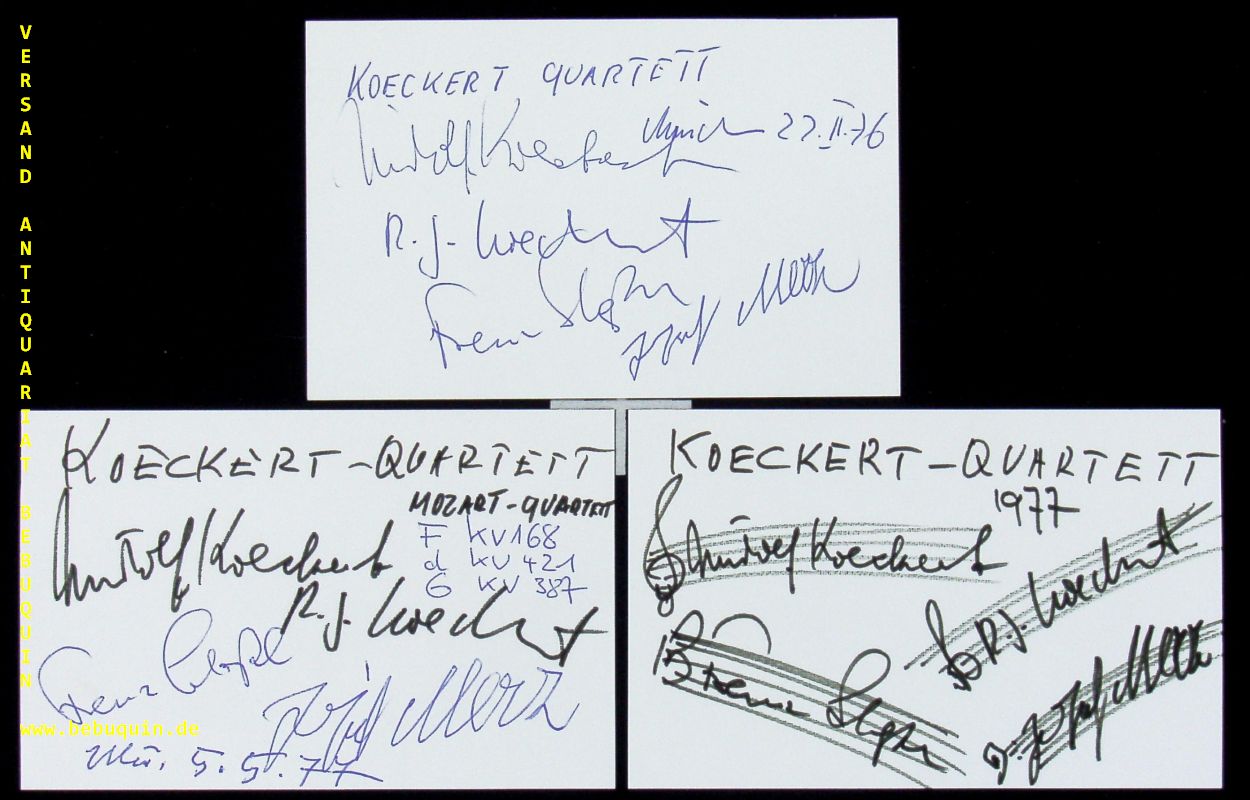 VERSAND ANTIQUARIAT BEBUQUIN
KOECKERT QUARTETT
Rudolf Koeckert
27.II.76
R. J. Koeckert
Franz
Josef Merz
KOECKERT-QUARTETT
MOZART-QUARTETT
F KV 168
d KV 421
G KV 387
Rudolf Koeckert
R. J. Koeckert
Franz
Josef Merz
Mü. 5.5.77
www.bebuquin.de
KOECKERT-QUARTETT
1977
Rudolf Koeckert
R. J. Koeckert
Franz
Josef Merz